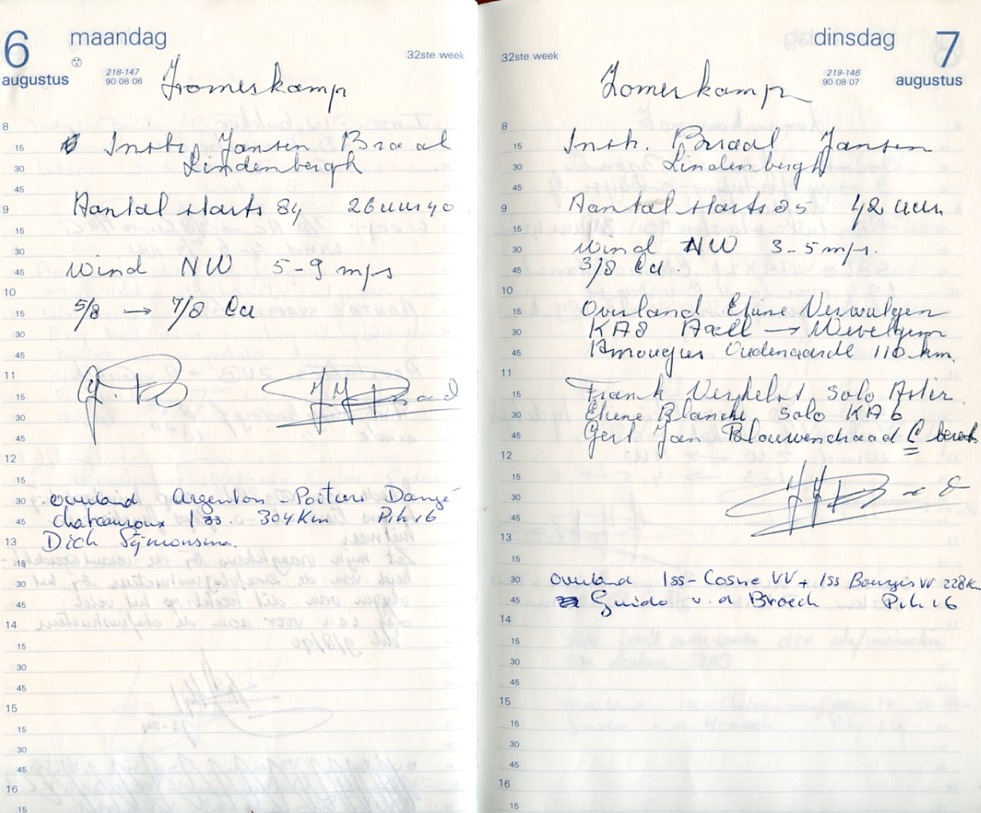 6 maandag
augustus
218-147
90 08 06
32ste week
Zomerkamp
8
15 Instr. Jansen Braal
30 Lindenbergh
45
9 Aantal starts 84 26 uur 40
15
30
45 Wind NW 5-9 mps
10
15 5/8 → 7/8 Cu
30
45
11
15
30
45
12
15
30 Overland Argenton Poitiers Dangé
45 Chateauroux Iss. 304 Km Pik 16
13 Dick Sijmonsma.
15
30
45
14
15
30
45
15
15
30
45
16
15
32ste week
dinsdag 7
augustus
219-146
90 08 07
Zomerkamp
8
15 Instr. Braal Jansen
30 Lindenbergh
45
9 Aantal starts 95 42 uur
15
30 Wind NW 3-5 mps.
45 3/8 Cu.
10
15 Overland Eline Verwulgen
30 KA8 Axel → Wevelgem
45 Amougies Oudenaarde 110 km.
11
15 Frank Solo Astir.
30 Eline Blanche Solo KA6
45 Gert Jan Blauwendraad C brevet
12
15
30
45
13
15
30 Overland Iss-Cosne VV + Iss Bourges VV 228Km
45 Guido v.d Broech Pik 16
14
15
30
45
15
15
30
45
16
15